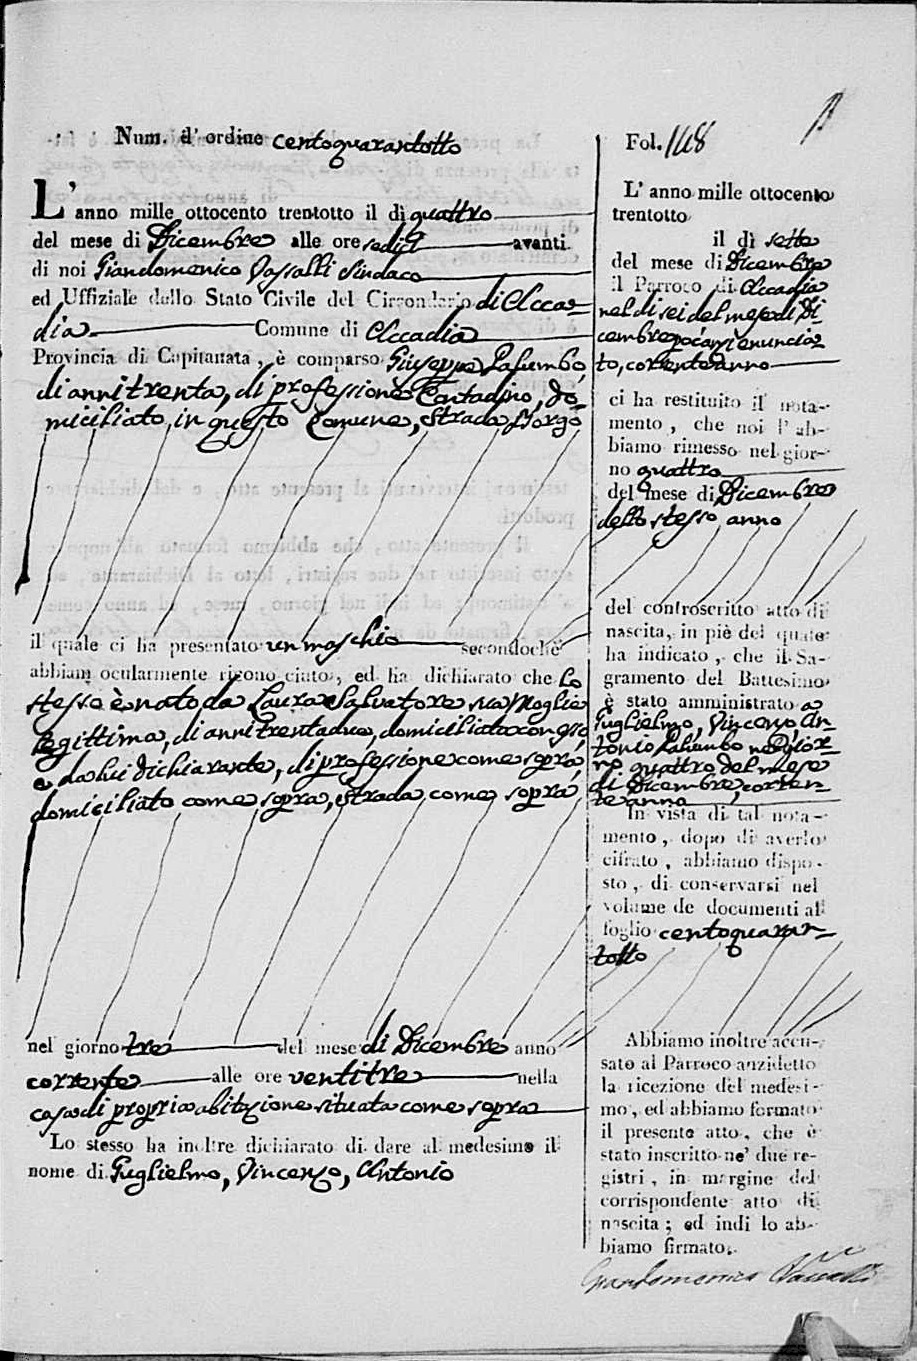 Num. d' ordine centoquarantotto
L' anno mille ottocento trentotto il dì quattro
del mese di Dicembre alle ore sedici avanti
di noi Giandomenico Vassalli Sindaco
ed Uffiziale dello Stato Civile del Circondario di Acca-
dia Comune di Accadia
Provincia di Capitanata, è comparso Giuseppe Palumbo,
di anni trenta, di professione Contadino, do-
miciliato in questo Comune, Strada Borgo
il quale ci ha presentato un maschio secondochè
abbiam ocularmente riconosciuto, ed ha dichiarato che lo
stesso è nato da Laura Salvatore sua Moglie
legittima, di anni trentadue, domiciliata con esso
e da lui dichiarante, di professione come sopra,
domiciliato come sopra, strada come sopra
nel giorno tre del mese di Dicembre anno
corrente alle ore ventitre nella
casa di propria abitazione situata come sopra
Lo stesso ha inoltre dichiarato di dare al medesimo il
nome di Guglielmo, Vincenzo, Antonio
Fol. 148
L' anno mille ottocento
trentotto
il dì sette
del mese di Dicembre
il Parroco di Accadia
nel dì sei del mese di Di-
cembre
to, corrente anno
ci ha restituito il nota-
mento, che noi l' ab-
biamo rimesso nel gior-
no quattro
del mese di Dicembre
dello stesso anno
del controscritto atto di
nascita, in piè del quale
ha indicato, che il Sa-
gramento del Battesimo
è stato amministrato a
Guglielmo, Vincenzo, An-
tonio Palumbo nel gior-
no quattro del mese
di Dicembre, corren-
te anno
In vista di tal nota-
mento, dopo di averlo
cifrato, abbiamo dispo-
sto, di conservarsi nel
volume de documenti al
foglio centoquaran-
totto
Abbiamo inoltre accu-
sato al Parroco anzidetto
la ricezione del medesi-
mo, ed abbiamo formato
il presente atto, che è
stato inscritto ne' due re-
gistri, in margine del
corrispondente atto di
nascita; ed indi lo ab-
biamo firmato.
Giandomenico Vassalli